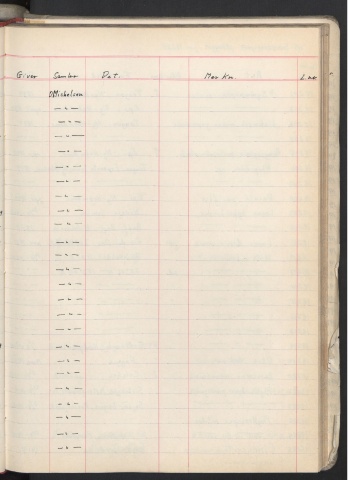 Giver Samler Dat. Merkn. L.nr.
O Michelsen
— " —
— " —
— " —
— " —
— " —
— " —
— " —
— " —
— " —
— " —
— " —
— " —
— " —
— " —
— " —
— " —
— " —
— " —
— " —
— " —
— " —
— " —
— " —